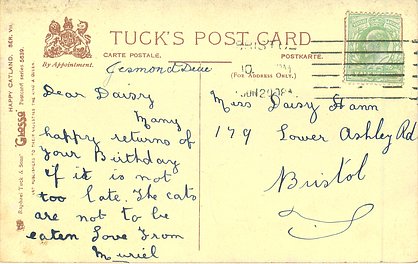 TUCK'S POST CARD
CARTE POSTALE.
POSTKARTE.
(FOR ADDRESS ONLY.)
By Appointment.
HAPPY CATLAND. SER. VII.
Raphael Tuck & Sons' "Glosso" Postcard series 5639.
ART PUBLISHERS TO THEIR MAJESTIES THE KING & QUEEN
Jesmond Dene
Dear Daisy
Many
happy returns of
your Birthday
if it is not
too late. The cats
are not to be
eaten Love From
Muriel
Miss Daisy Hann
179 Lower Ashley Rd
Bristol